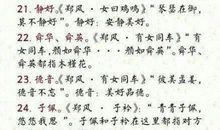 21. 静好。《郑风·女曰鸡鸣》“琴瑟在御，
莫不静好”。静好：安静美好。
22. 舜华、舜英。《郑风·有女同车》“有
女同车，颜如舜华······颜如舜英”。舜华、
舜英都指木槿花。
23. 德音。《郑风·有女同车》“彼美孟姜，
德音不忘”。德音：美好品德。
24. 子佩。《郑风·子衿》：“青青子佩，
悠悠我思”。子佩和子衿在这里都指对方